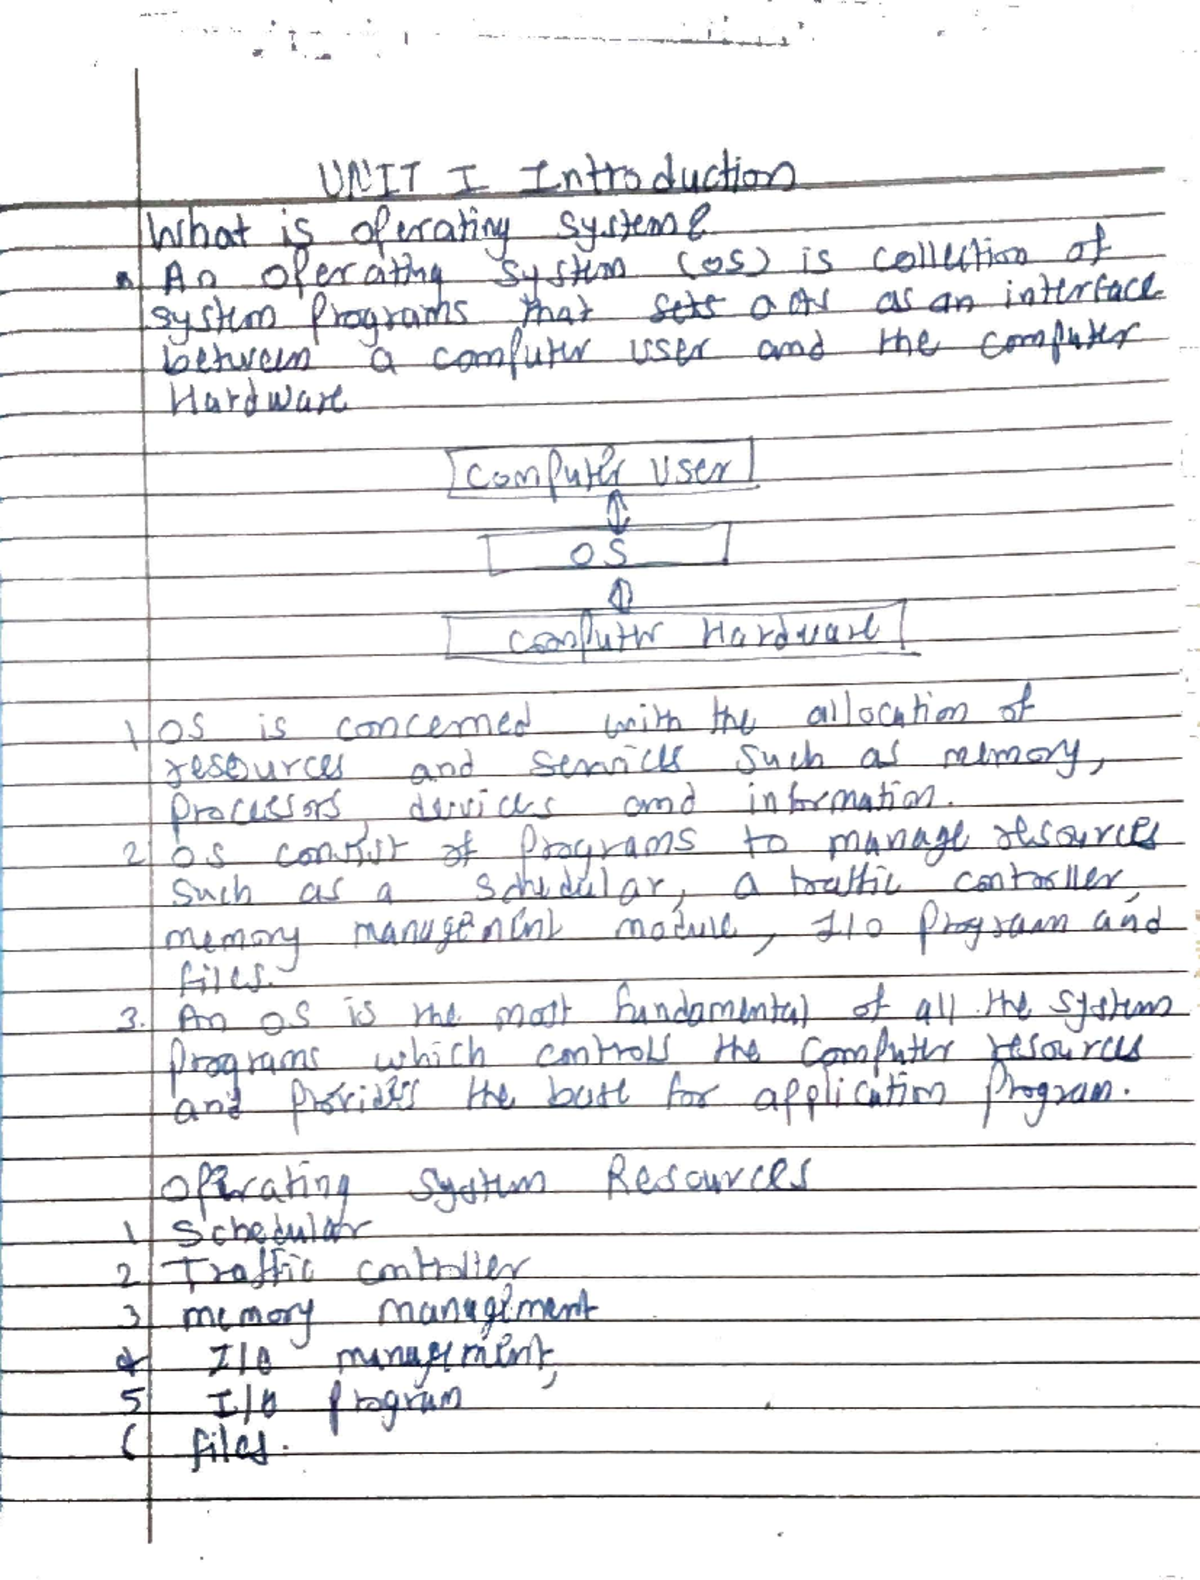 UNIT I Introduction
What is operating system?
An operating system (OS) is collection of
system programs that sets acts as an interface
between a computer user and the computer
Hardware
Computer User
OS
Computer Hardware
1 OS is concerned with the allocation of
resources and services such as memory,
processors, devices and information.
2 OS consist of programs to manage resources
such as a schedular, a traffic controller,
memory management module, I/O program and
files.
3. An OS is the most fundamental of all the system
programs which controls the computer resources
and provides the base for application program.
Operating System Resources
1 Schedular
2 Traffic controller
3 memory management
4 I/O management,
5 I/O program
6 files.